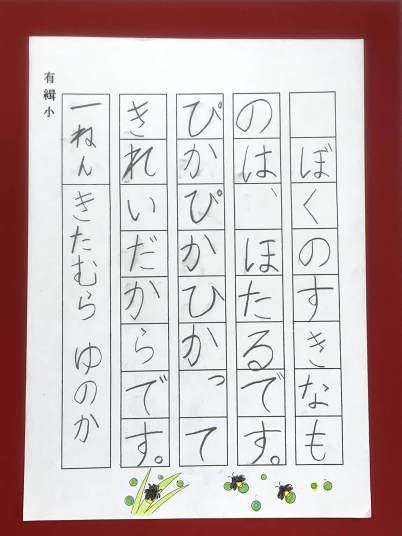 ぼくのすきなも
のは、ほたるです。
ぴかぴかひかって
きれいだからです。
一ねん きたむら ゆのか
有緝小